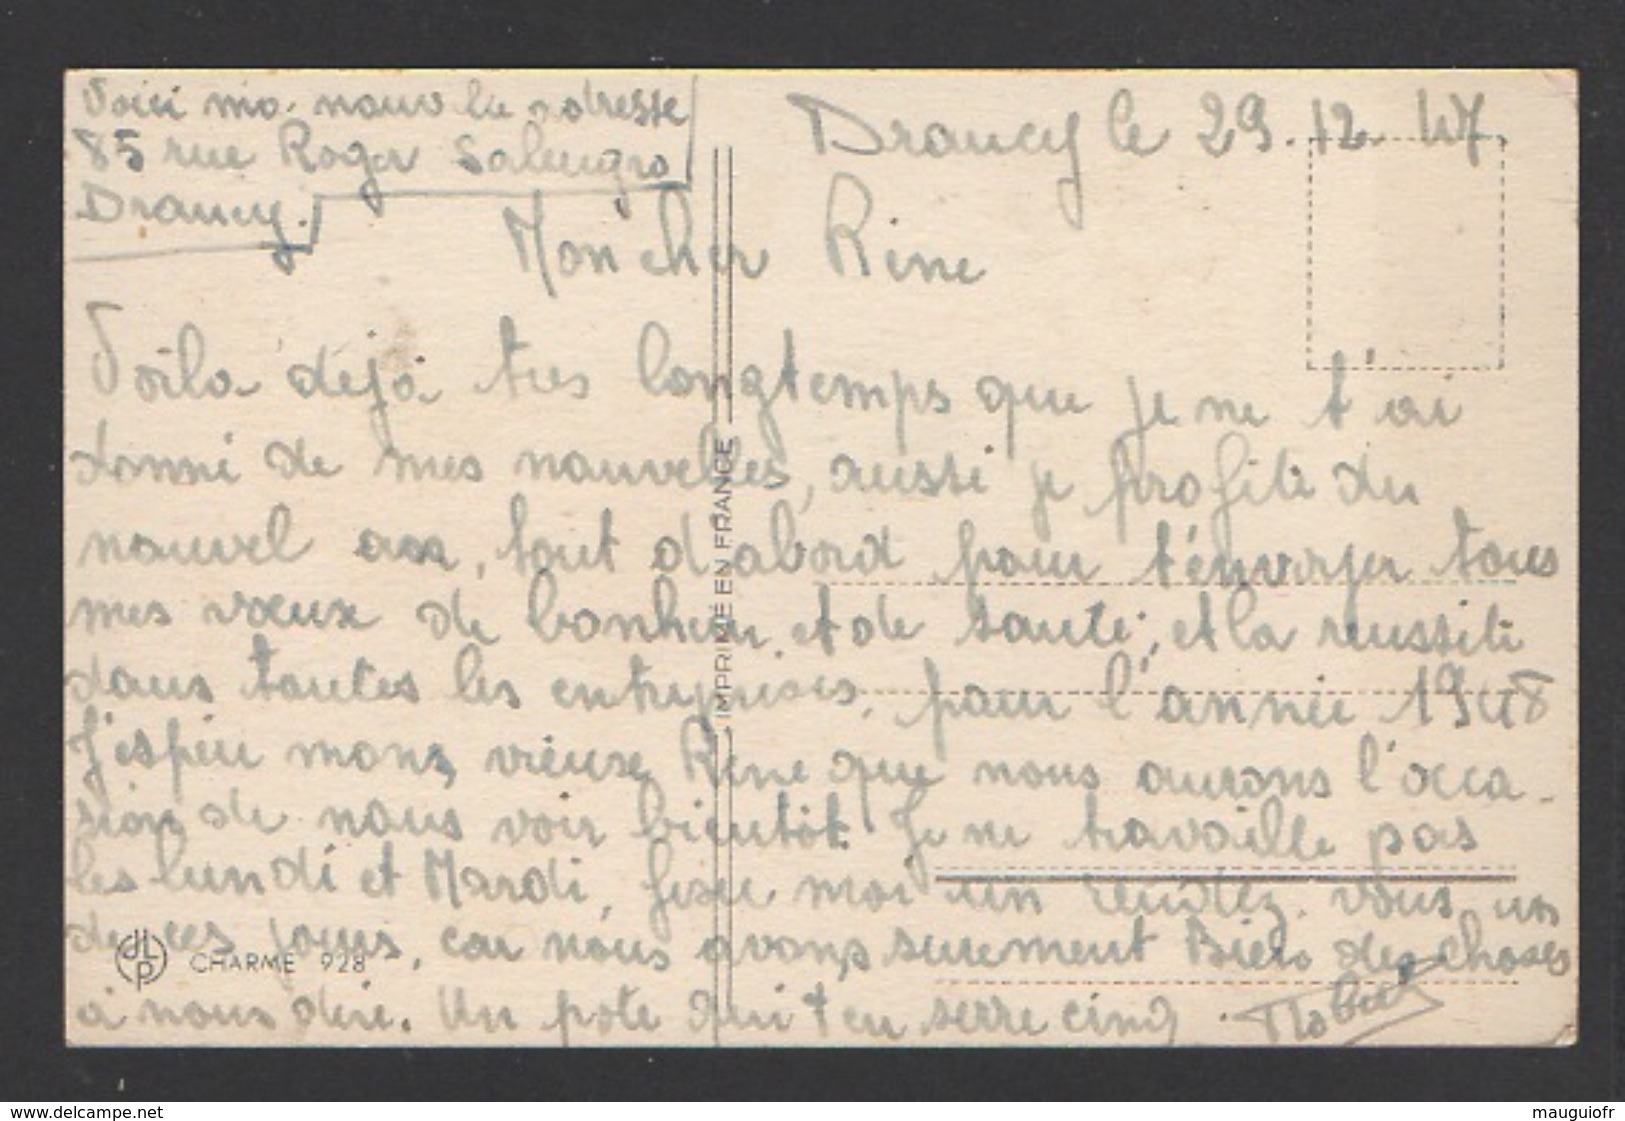 Voici ma nouvelle adresse
85 rue Roger Salengro
Drancy.
Drancy le 29.12.47
Mon cher Réne
Voila déjà tres longtemps que je ne t'ai
donné de mes nouvelles, aussi je profite du
nouvel an, tout d'abord pour t'envoyer tous
mes vœux de bonheur et de santé, et la reussite
dans toutes les entreprises, pour l'année 1948
J'espère mon vieux Réne que nous aurons l'occa-
sion de nous voir bientôt. Je ne travaille pas
les lundi et Mardi, fixe moi un rendez-vous un
de ces jours, car nous avons surement Bien des choses
à nous dire. Un pote qui t'en serre cinq
IMPRIMÉ EN FRANCE
JLP
CHARME 928
www.delcampe.net
mauguiofr